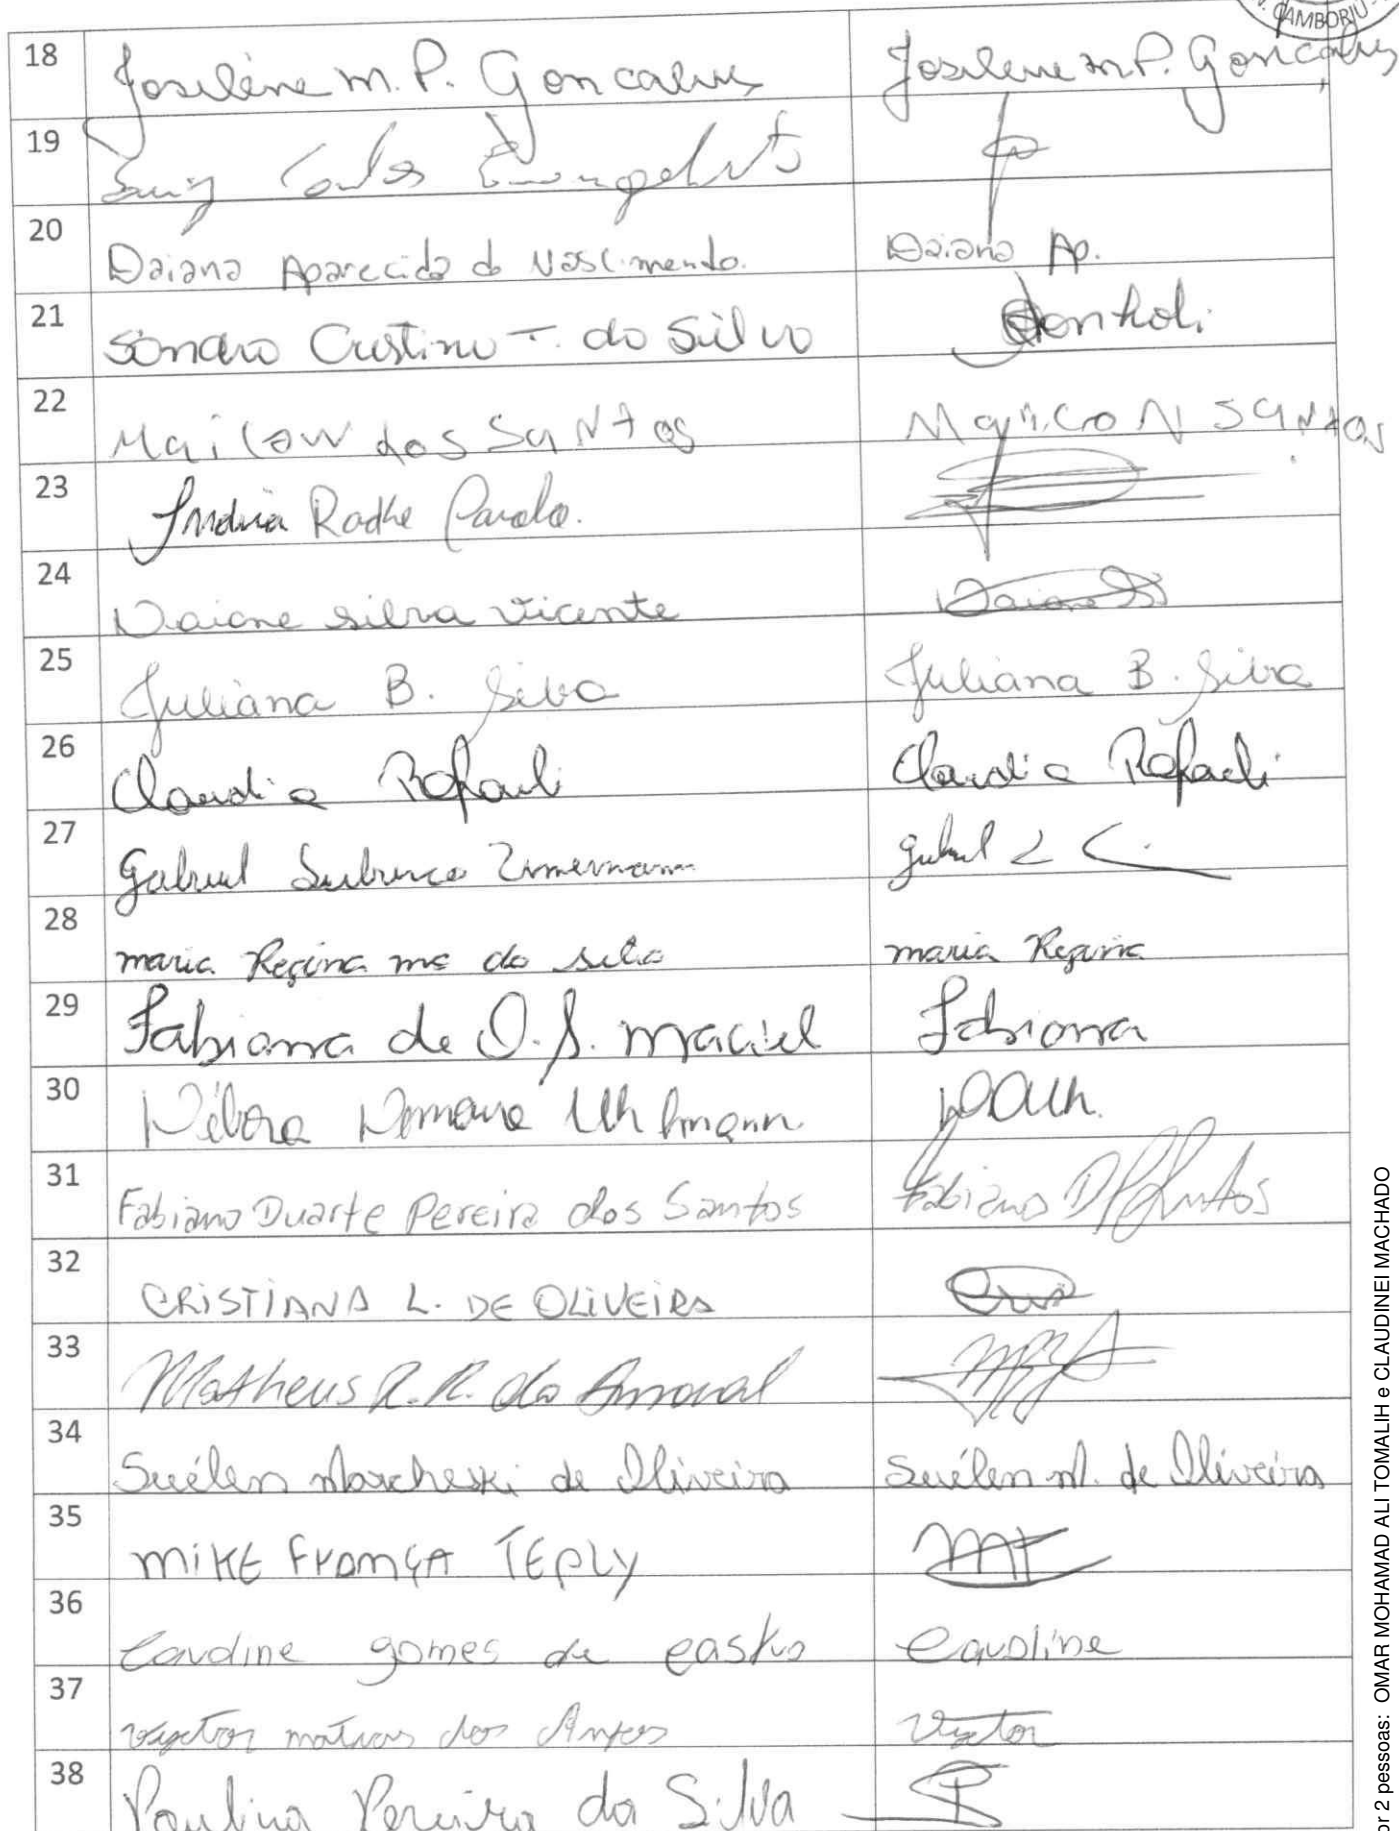 CAMBORIÚ
18 Josilene m. P. Goncalves Josilene m P. Goncalves
19 Luiz Carlos Evangelista
20 Daiana Aparecida do Nascimento. Daiana Ap.
21 Sandra Cristina T. da Silva
22 Maicon dos SaNtos Maicon SaNtos
23 Radke
24 Daiane silva Vicente Daiane
25 Juliana B. Silva Juliana B. Silva
26 Claudia Rafaeli Claudia Rafaeli
27 Gabriel
28 maria Regina da silva maria Regina
29 Fabiana de O. S. maciel Fabiana
30 Débora Uhlmann
31 Fabiano Duarte Pereira dos Santos Fabiano
32 CRiSTiANA L. DE OLiVEiRA Cris
33 Matheus R. R. do Amaral
34 Suélen Marcheski de Oliveira Suélen M. de Oliveira
35 MiKE FrANÇA TEPLY
36 Caroline gomes de castro Caroline
37 dos Anjos
38 Paulina Pereira da Silva
or 2 pessoas: OMAR MOHAMAD ALI TOMALIH e CLAUDINEI MACHADO